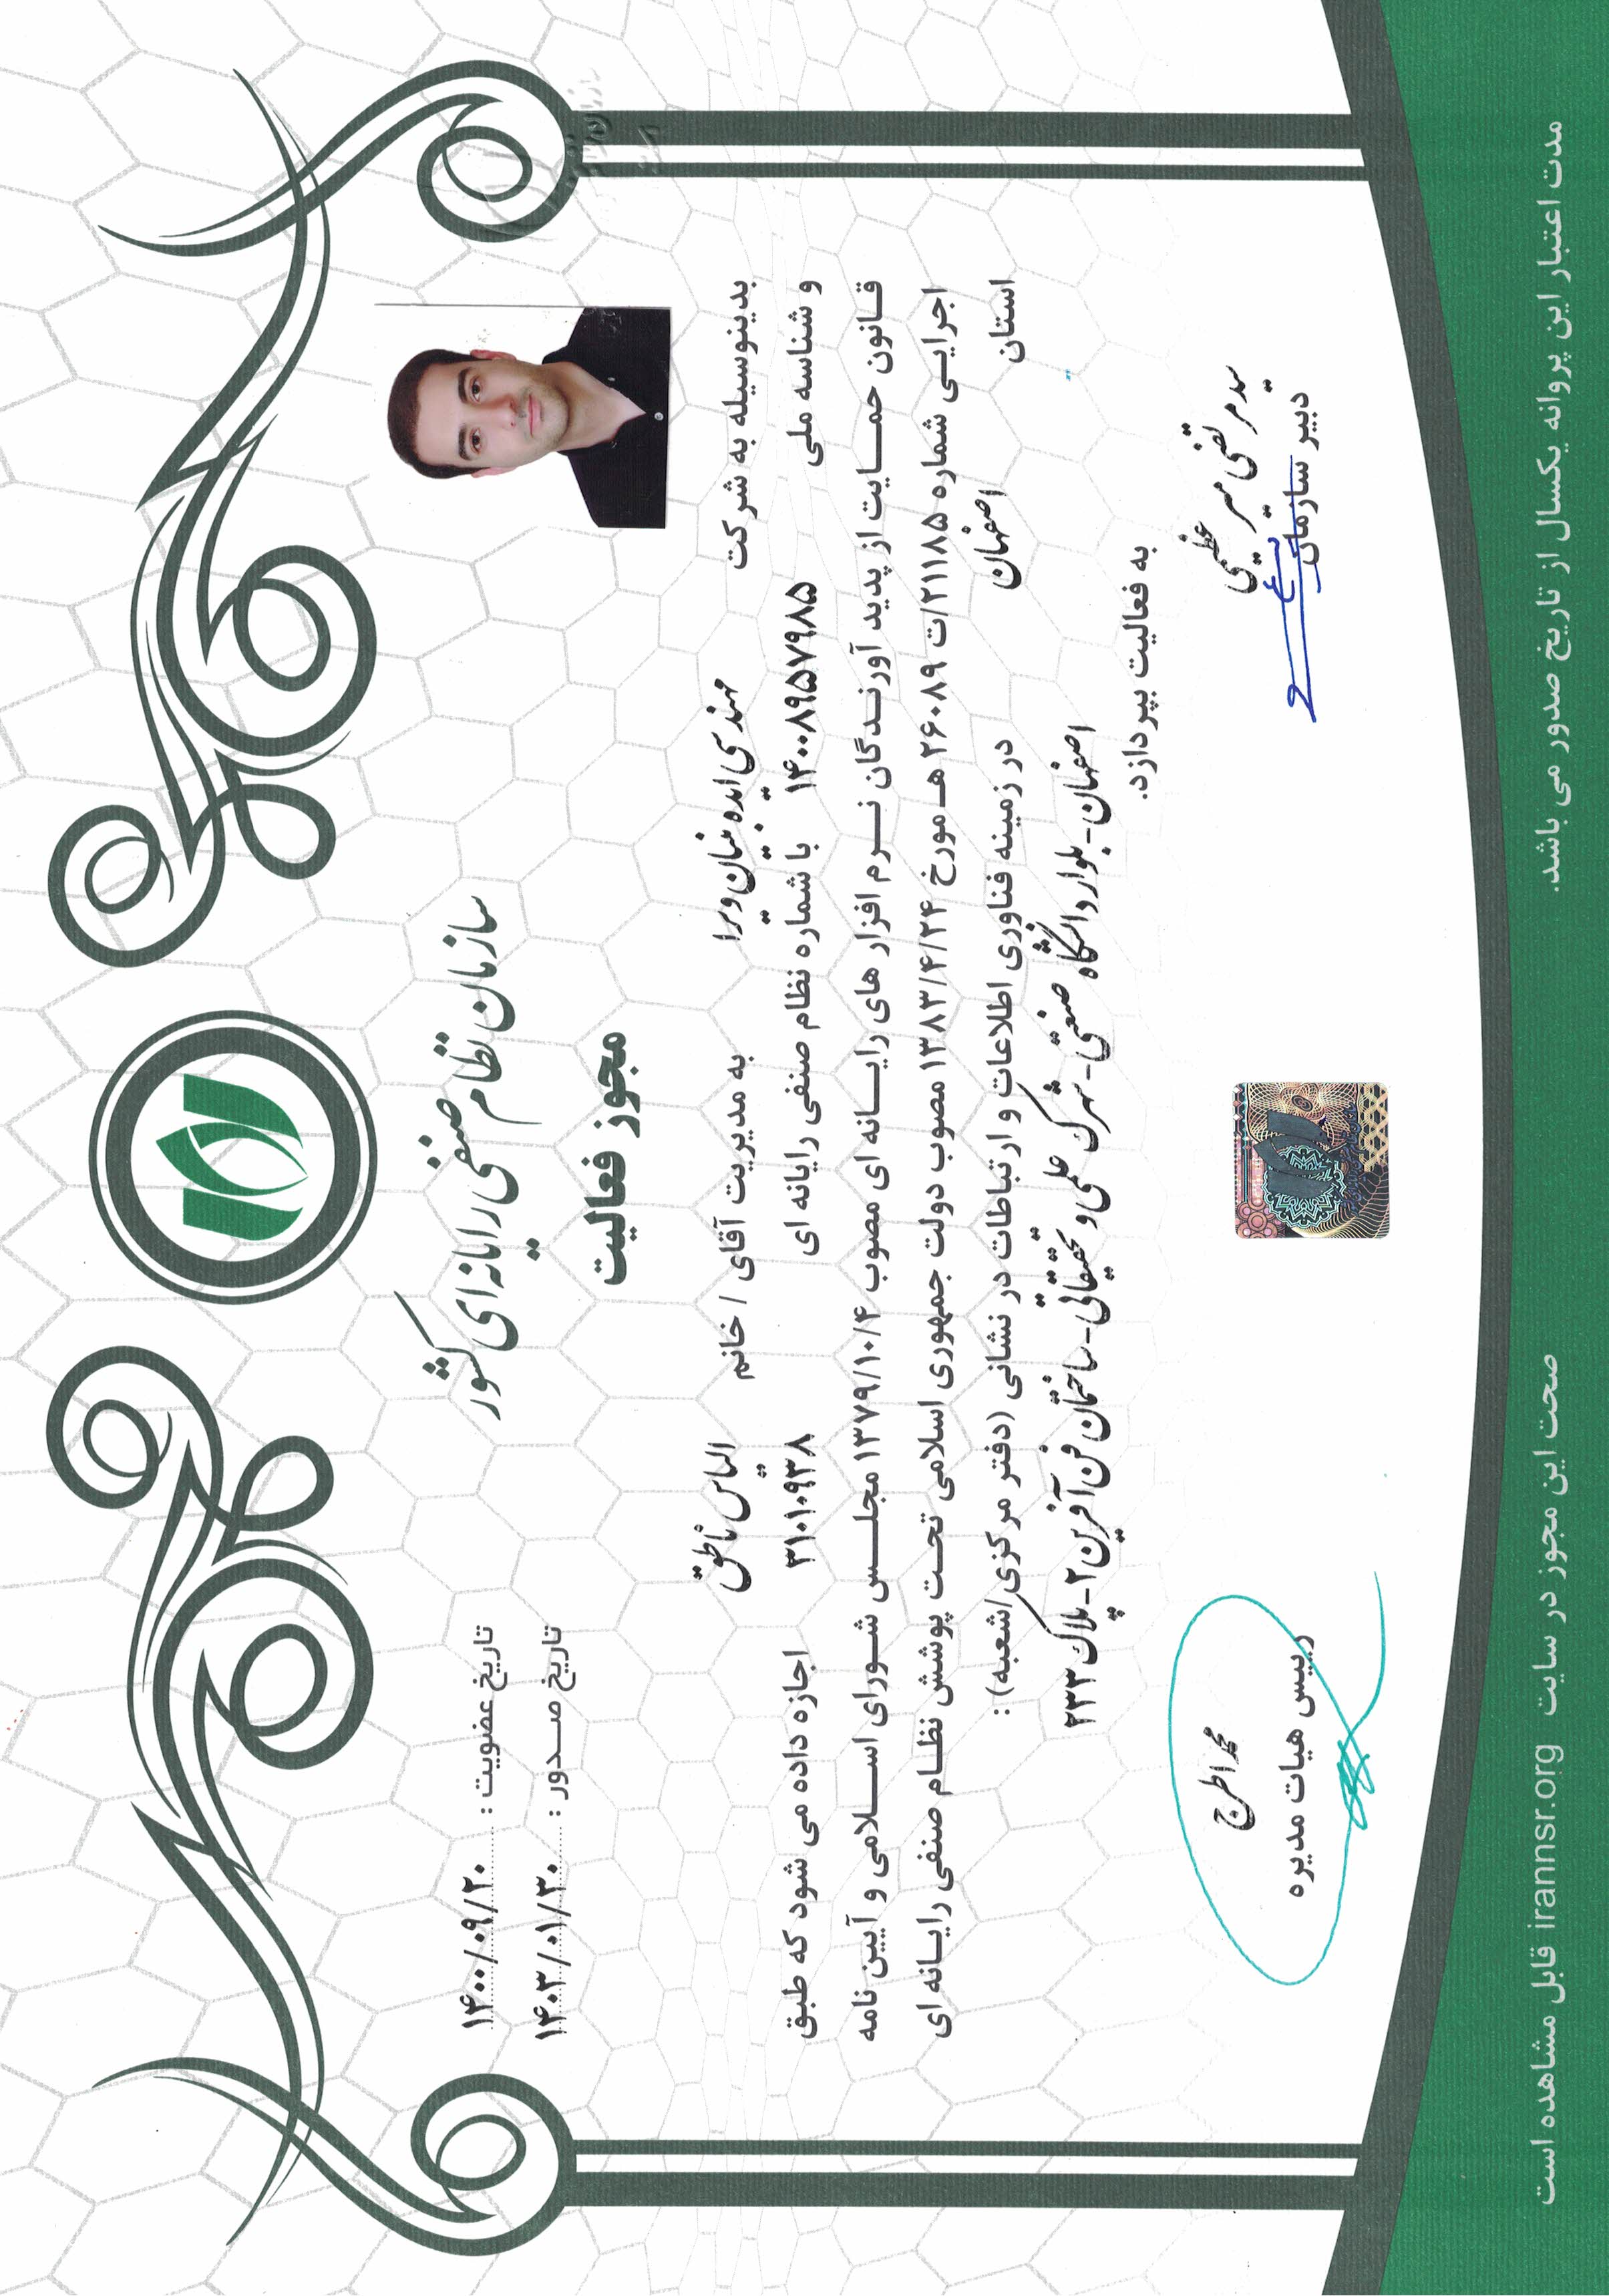 سازمان نظام صنفی رایانه‌ای کشور
مجوز فعالیت
تاریخ عضویت : ۱۴۰۰/۰۹/۲۰
تاریخ صـــدور : ۱۴۰۳/۰۱/۳۰
بدینوسیله به شرکت مهندسی ایده بنیان ویرا به مدیریت آقای / خانم الیاس ناطق
و شناسه ملی ۱۴۰۰۸۹۵۷۹۸۵ با شماره نظام صنفی رایانه ای ۳۱۰۱۰۹۳۸ اجازه داده می شود که طبق
قـانون حمـــایت از پدید آورنـدگان نـــرم افزار های رایـــانه ای مصوب ۱۳۷۹/۱۰/۴ مجلـــس شـورای اســـلامی و آیین نامه
اجرایـی شماره ۲۱۱۸۵/ت ۲۶۰۸۹ هـ مورخ ۱۳۸۳/۴/۲۴ مصوب دولت جمهوری اسلامی تحـت پوشش نظـام صنفی رایـانه ای
استان اصفهان در زمینه فناوری اطلاعات و ارتباطات در نشانی (دفتر مرکزی/شعبه) :
اصفهان-بلوار دانشگاه صنعتی-شهرک علمی و تحقیقاتی-ساختمان فن آفرین ۲-پلاک ۲۳۳
به فعالیت بپردازد.
سید مرتضی میر عظیمی
دبیر سازمان
محمد اطرج
رییس هیات مدیره
مدت اعتبار این پروانه یکسال از تاریخ صدور می باشد.
صحت این مجوز در سایت irannsr.org قابل مشاهده است